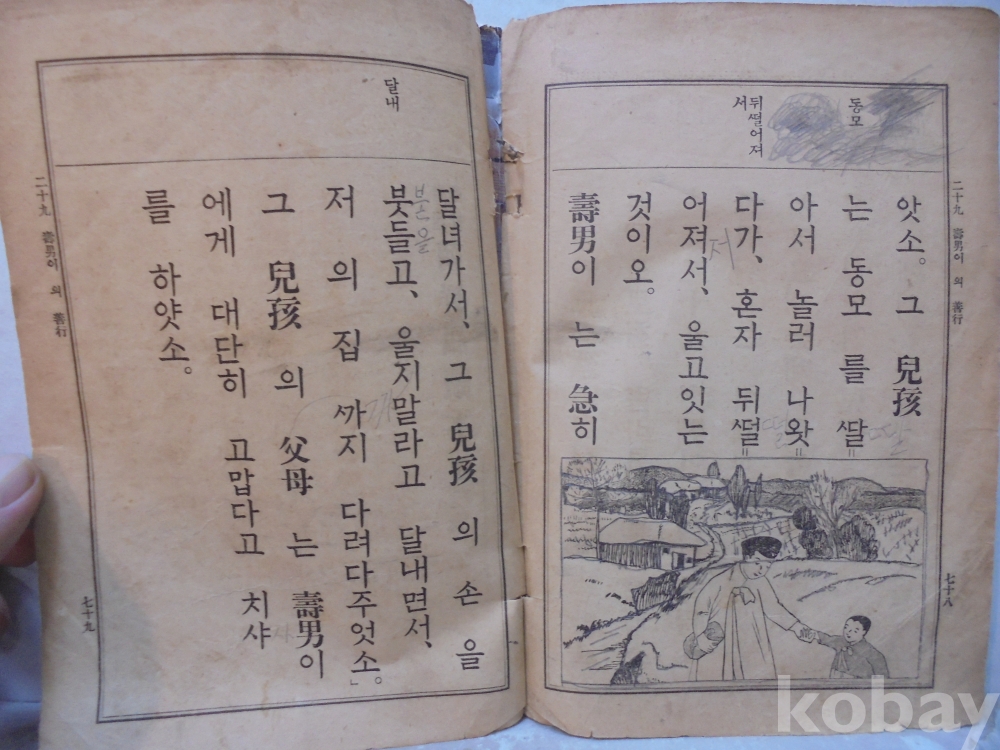 二十九 壽男이 의 善行
七十八
동모
뒤ᄯᅥᆯ어져
서
앗소。그 兒孩
는 동모 를 ᄯᅡᆯ
아서 놀러 나왓
다가、혼자 뒤ᄯᅥᆯ
어져서、울고잇는
저
것이오。
壽男이 는 急히
달내
달녀가서、그 兒孩 의 손 을
붓들고、울지말라고 달내면서、
저 의 집 ᄭᅡ지 다려다주엇소。」
까
그 兒孩 의 父母 는 壽男이
에게 대단히 고맙다고 치샤
사
를 하얏소。
二十九 壽男이 의 善行
七十九
kobay